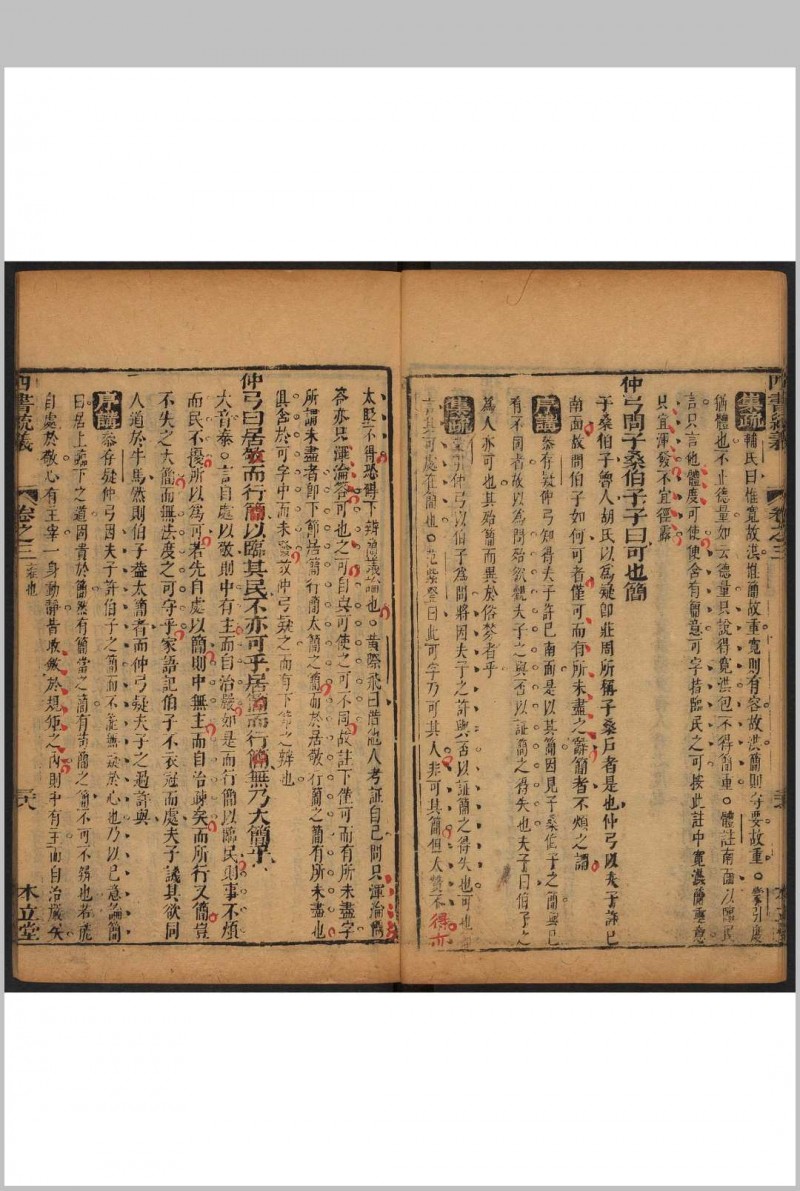 四書統義 卷之三 本立堂
集疏 輔氏曰惟寬故洪惟簡故重寬則有容故洪簡則守要故重○蒙引度
猶體也不止德量如云德量只說得寬洪包不得簡重○體註南面以臨民
言只言他體度可使使舍有簡意可字指臨民之可按此註中寬洪簡重意
只宜渾發不宜徑露
仲弓問子桑伯子子曰可也簡
子桑伯子魯人胡氏以為疑即莊周所稱子桑戶者是也仲弓以夫子許己
南面故問伯子如何可者僅可而有所未盡之辭簡者不煩之謂
序講 泰存疑仲弓知得夫子許己南面是以其簡因見子桑伯子之簡與己
有不同者故以為問殆欲觀夫子之與否以証簡之得失也夫子曰伯子之
為人亦可也其殆簡而異於俗務者乎
集疏 蒙引仲弓以伯子為問將因夫子之許與否以証簡之得失也可也
言其可處在簡也○ 曰此可字乃可其人非可其簡但人 不得亦
太貶不得恐 下辨 論也○黃際飛曰借他人考証自己問只渾淪簡
答亦只渾淪答可也之可自與可使之可不同故註下僅可而有所未盡字
所謂未盡者即下節居簡行簡太簡之簡而於居敬行簡之簡有所未盡也
俱含於可字中而未發故仲弓疑之而有下節之辨也
仲弓曰居敬而行簡以臨其民不亦可乎居簡而行簡無乃大簡乎
大音泰○言自處以敬則中有主而自治嚴如是而行簡以臨民則事不煩
而民不擾所以為可若先自處以簡則中無主而自治疎矣而所行又簡豈
不失之大簡而無法度之可守乎家語記伯子不衣冠而處夫子譏其欲同
人道於牛馬然則伯子蓋太簡者而仲弓疑夫子之過許與
序講 泰存疑仲弓因夫子許伯子之簡而不能無疑於心也乃以己意論簡
曰居上臨下之道固貴於簡然有簡當之簡有苟簡之簡不可不辨也若能
自處於敬心有主宰一身動靜皆收斂於規矩之內則中有主而自治嚴矣
四書統義 卷之三 雍也 六 本立堂